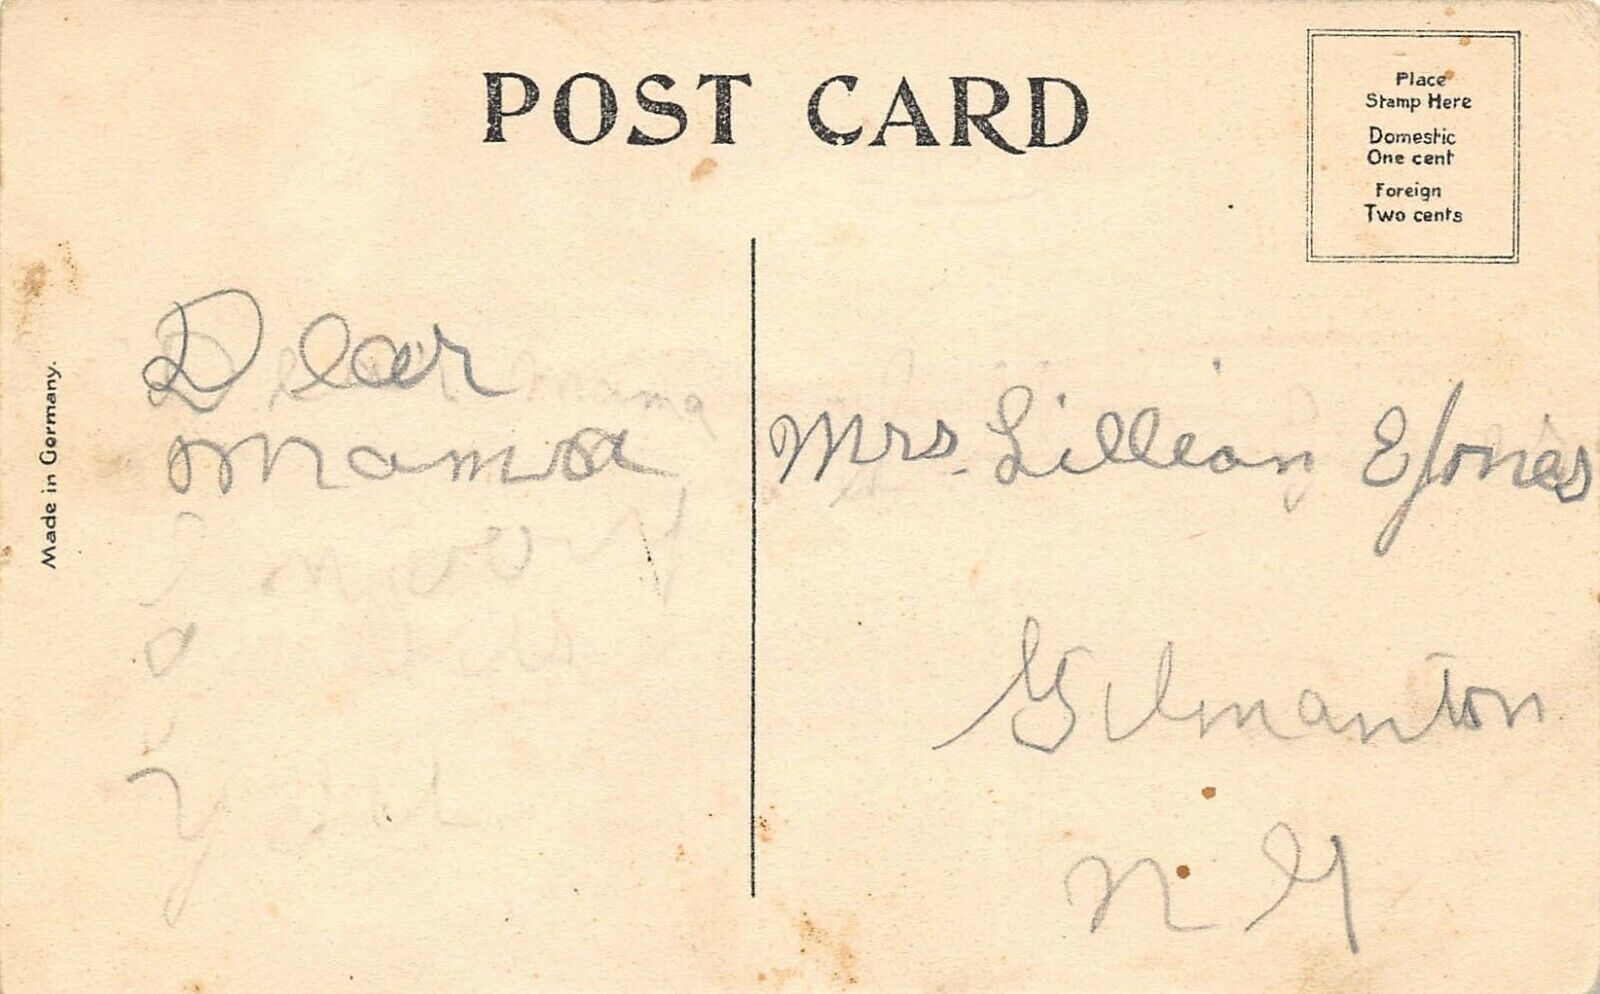 POST CARD
Place
Stamp Here
Domestic
One cent
Foreign
Two cents
Made in Germany.
Dear
Mama
Mrs. Lillian E Jones
Gilmanton
N H